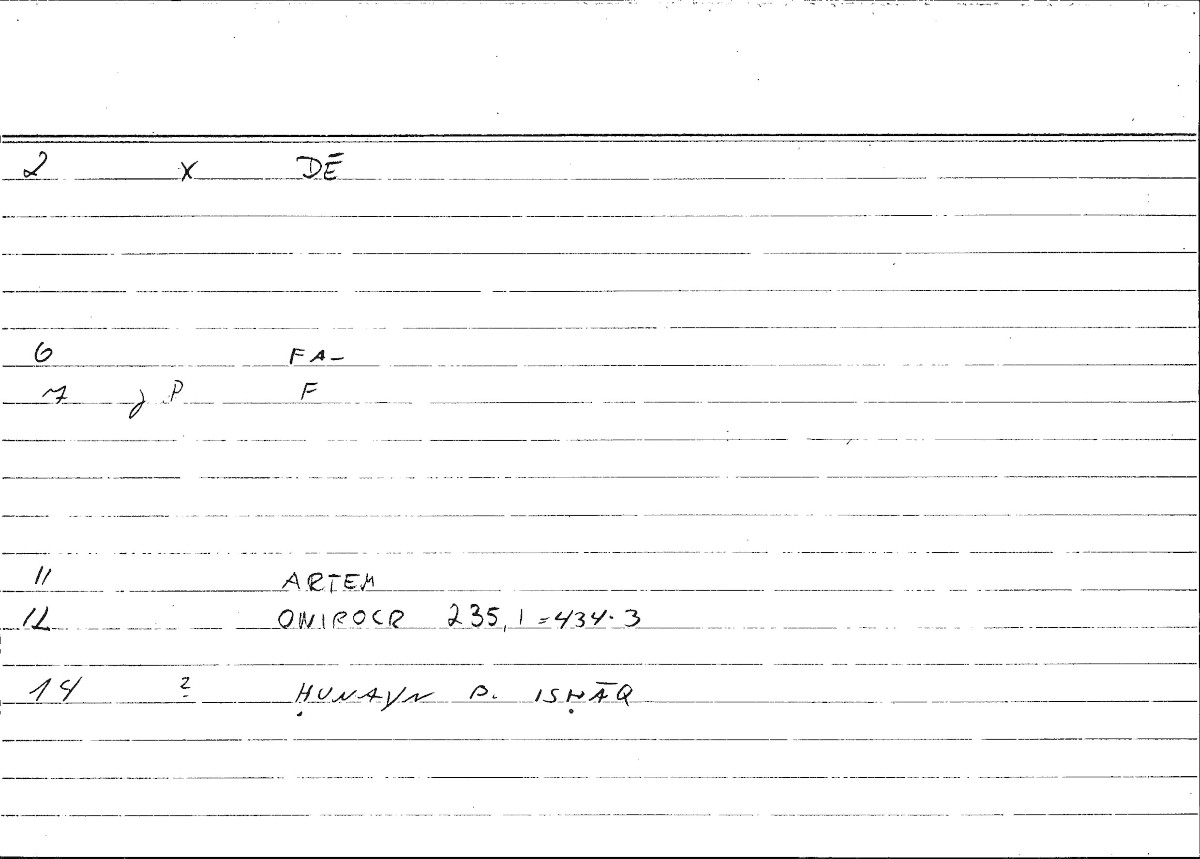 2 x DĒ
6 FA-
7 j P F
11 ARTEM
12 ONIROCR 235,1=434.3
14 ? ḤUNAYN B. ISḤĀQ